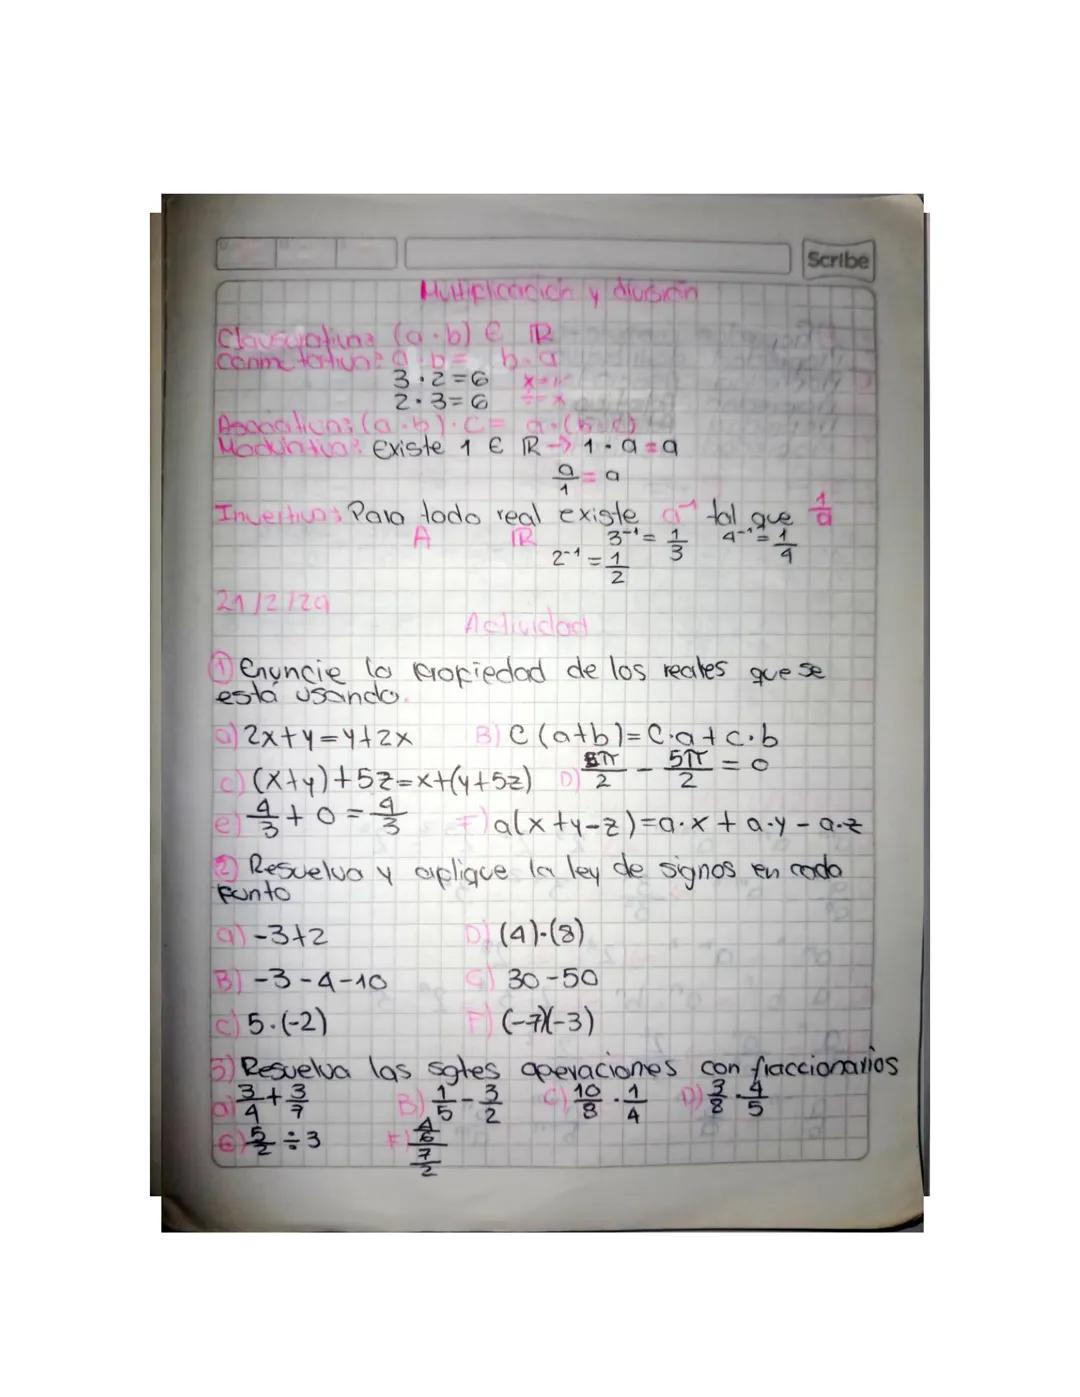 Scribe
Multiplicación y división
Clausurativa: (a·b) ∈ ℝ
Conmutativa: a·b = b·a
3·2=6
2·3=6
Asociativa: (a·b)·c = a·(b·c)
Modulativa: Existe 1 ∈ ℝ → 1·a=a
a/1 = a
Invertiva: Para todo real existe a⁻¹ tal que 1/a
A ℝ 3⁻¹= 1/3 4⁻¹= 1/4
2⁻¹ = 1/2
21/2/29
Actividad
① Enuncie la propiedad de los reales que se
está usando.
a) 2x+y=y+2x B) C(a+b)=C·a+c·b
c) (x+y)+5z=x+(y+5z) D) 5π/2 - 5π/2 = 0
e) 4/3 + 0 = 4/3 F) a(x+y-z)=a·x+a·y-a·z
② Resuelva y aplique la ley de signos en cada
punto
a) -3+2 D) (4)·(8)
B) -3-4-10 30-50
c) 5·(-2) F) (-7)(-3)
3) Resuelva las sgtes operaciones con fraccionarios
a) 3/4 + 3/7 B) 1/5 - 3/2 c) 10/8 · 1/4 D) 3/8 · 4/5
5/2 ÷ 3 4/6 / 7/2